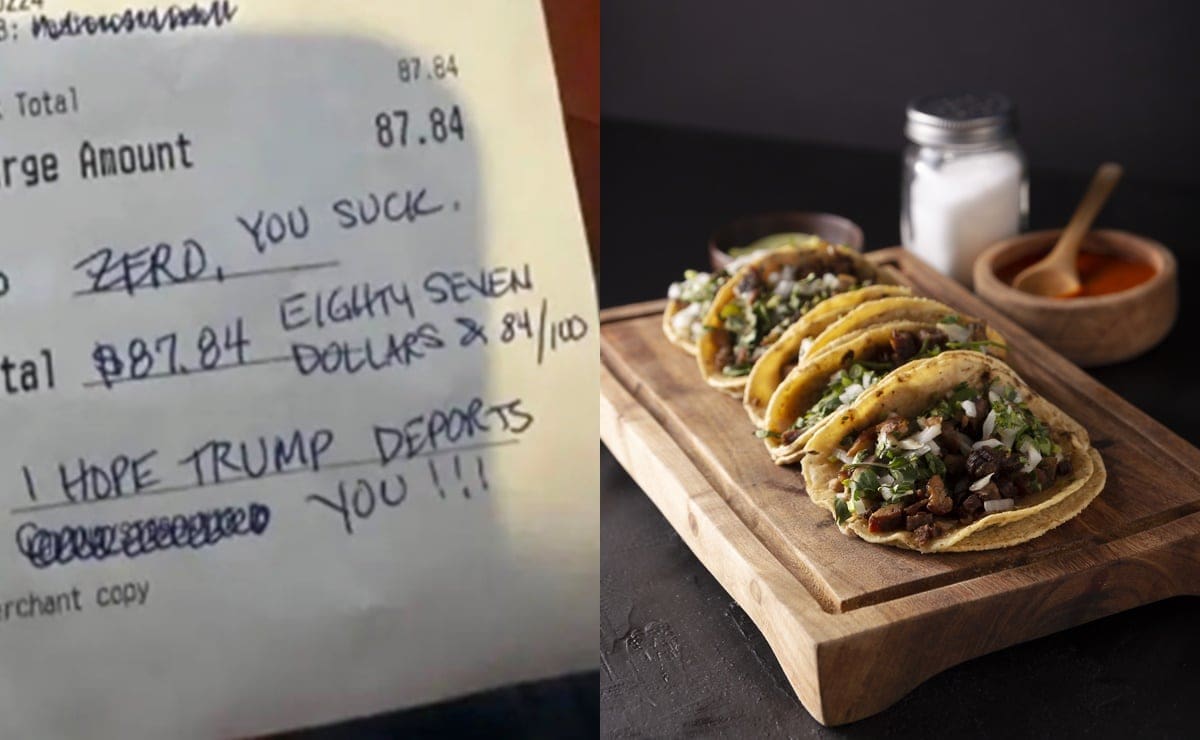 Total 87.84
rge Amount 87.84
ZERO, YOU SUCK.
tal $87.84 EIGHTY SEVEN
DOLLARS & 84/100
I HOPE TRUMP DEPORTS
YOU!!!
erchant copy